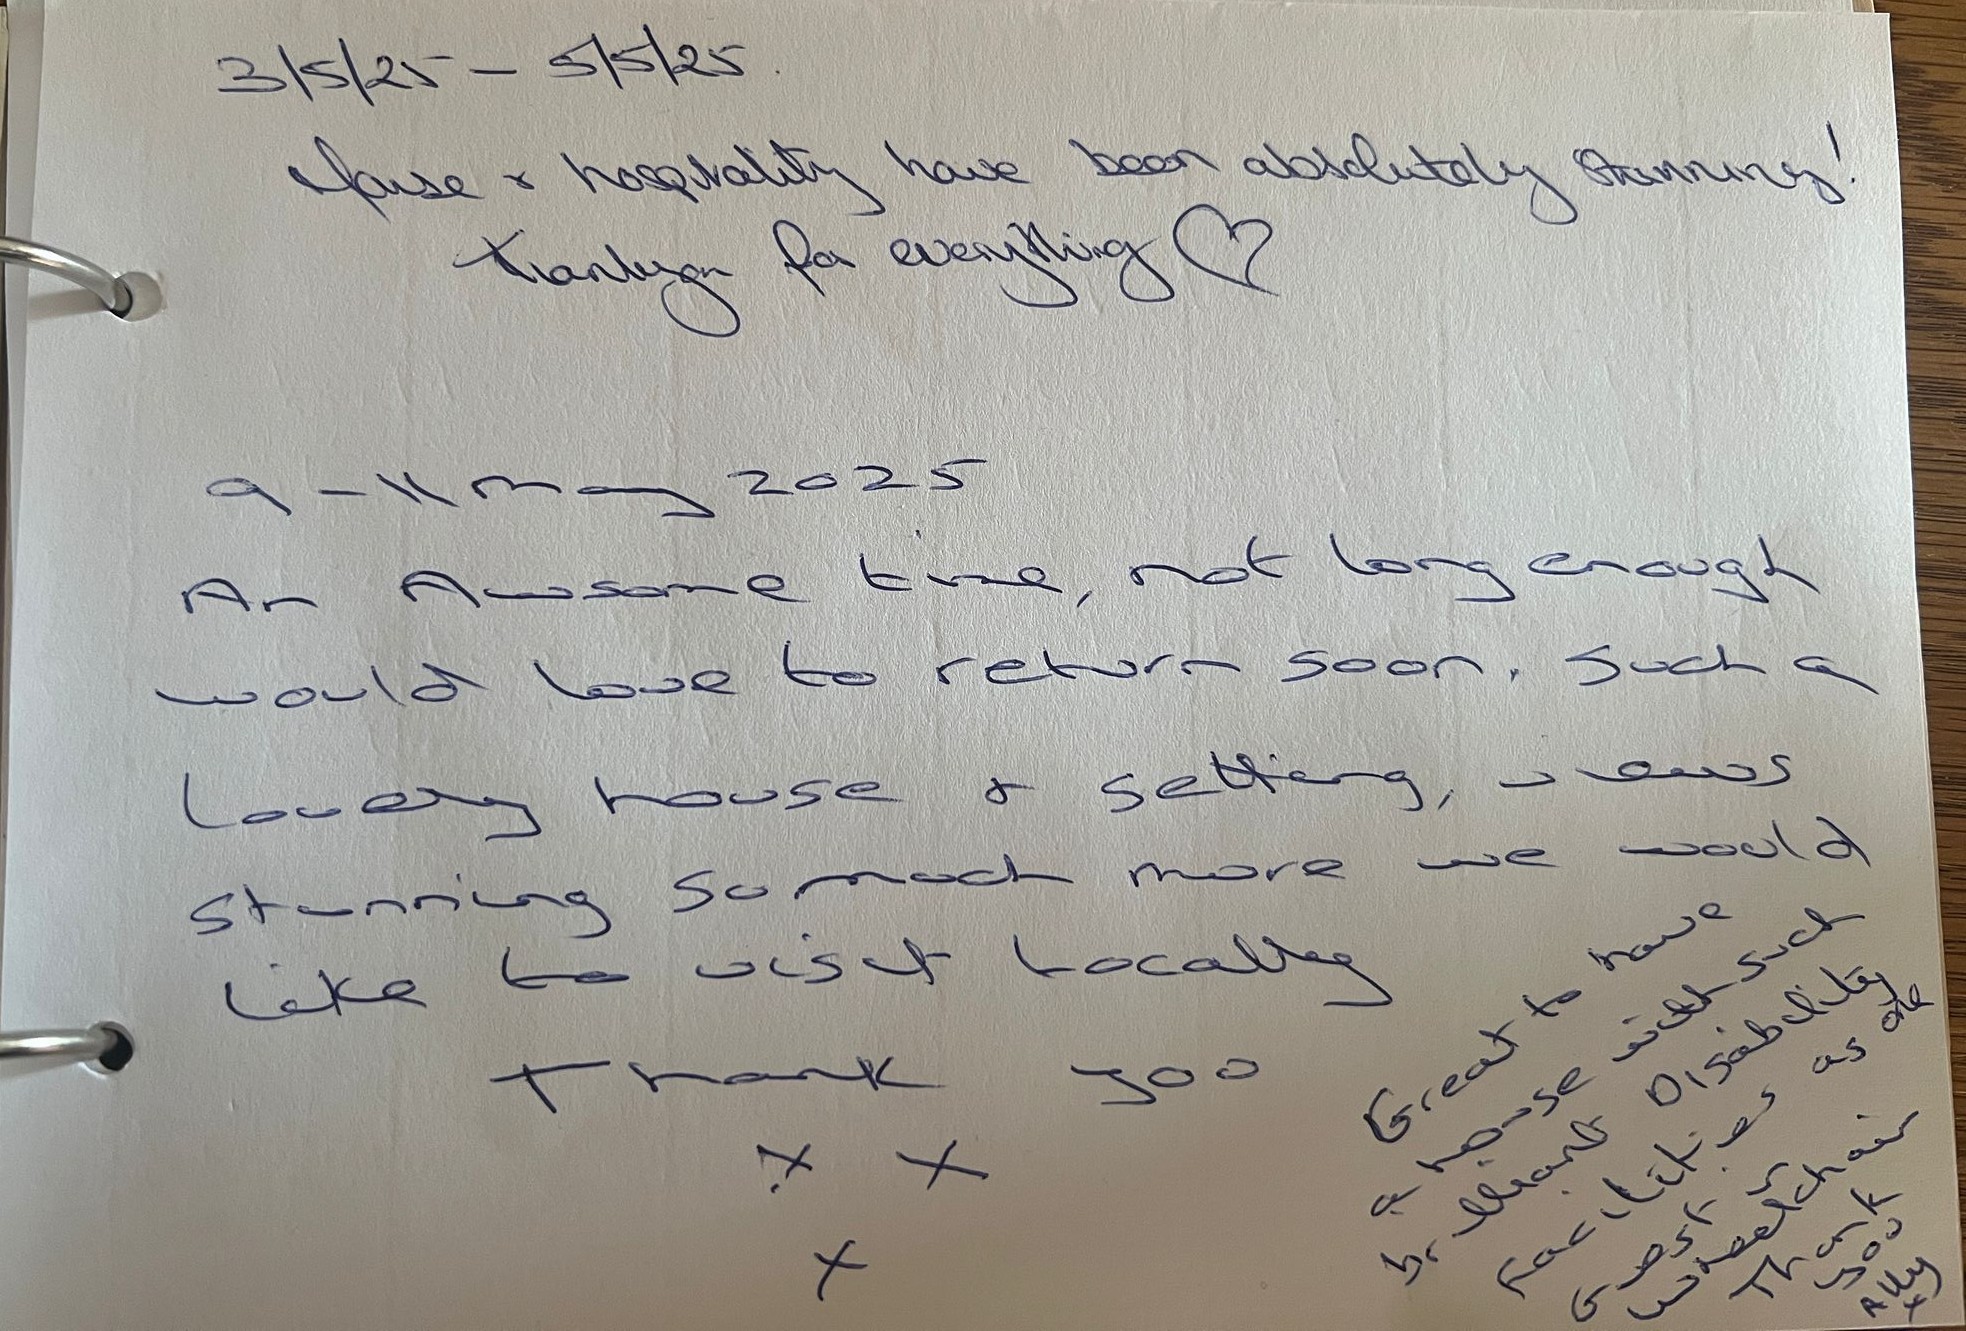 3/5/25 – 5/5/25.
House & hospitality have been absolutely stunning!
Thankyou for everything ♡
9 – 11 May 2025
An Awsome time, not long enough
would love to return soon. Such a
Lovely house & setting, views
stunning so much more we would
Like to visit Locally
Thank you
x x
x
Great to have
a house with such
brilliant Disability
Facilities as one
Guest is
wheelchair
Thank
you
Ally
x